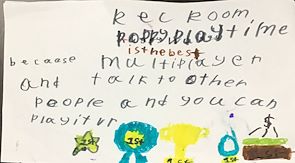 Rec Room
poppy playtime
is the best
becaase multiplayer
and talk to other
people and you can
play it
1st 1st
$